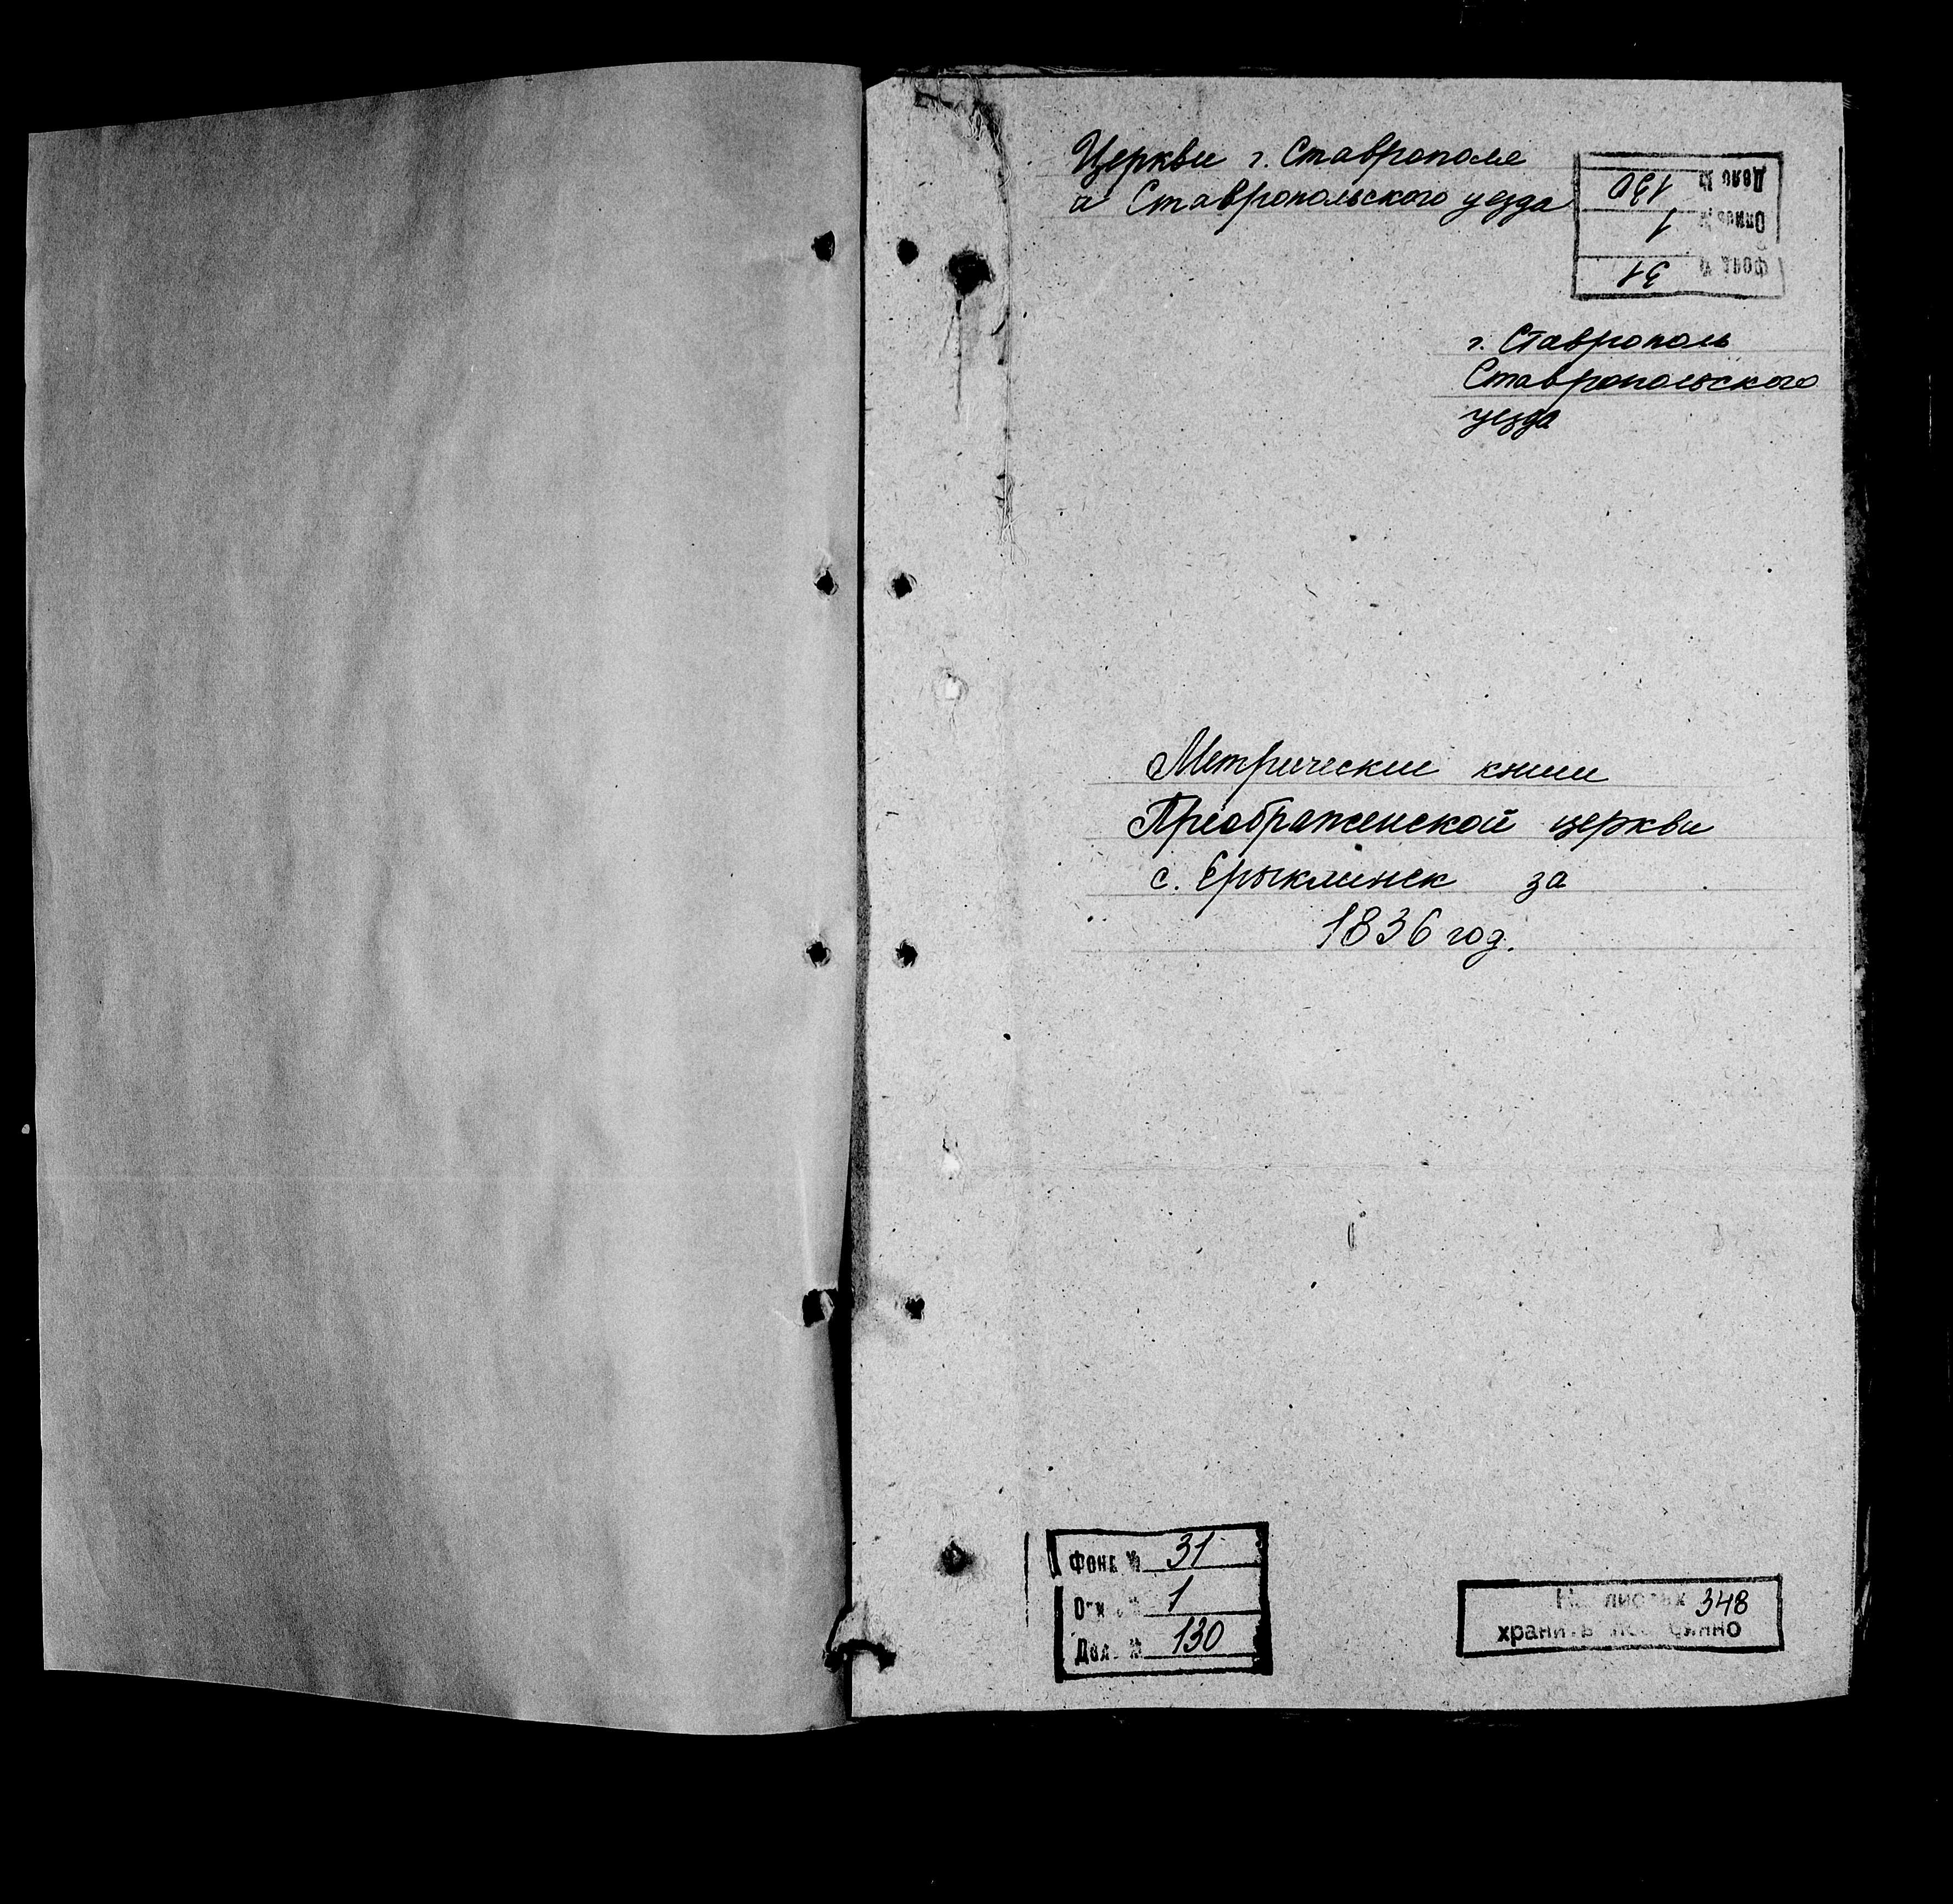 Церкви г. Ставрополя
и Ставропольского уезда
Дело № 130
Опись № 1
Фонд № 31
г. Ставрополь
Ставропольского
уезда
Метрические книги
Преображенской церкви
с. Ерыклинск за
1836 год.
Фонд № 31
Опись № 1
Дело № 130
На листах 348
хранить постоянно